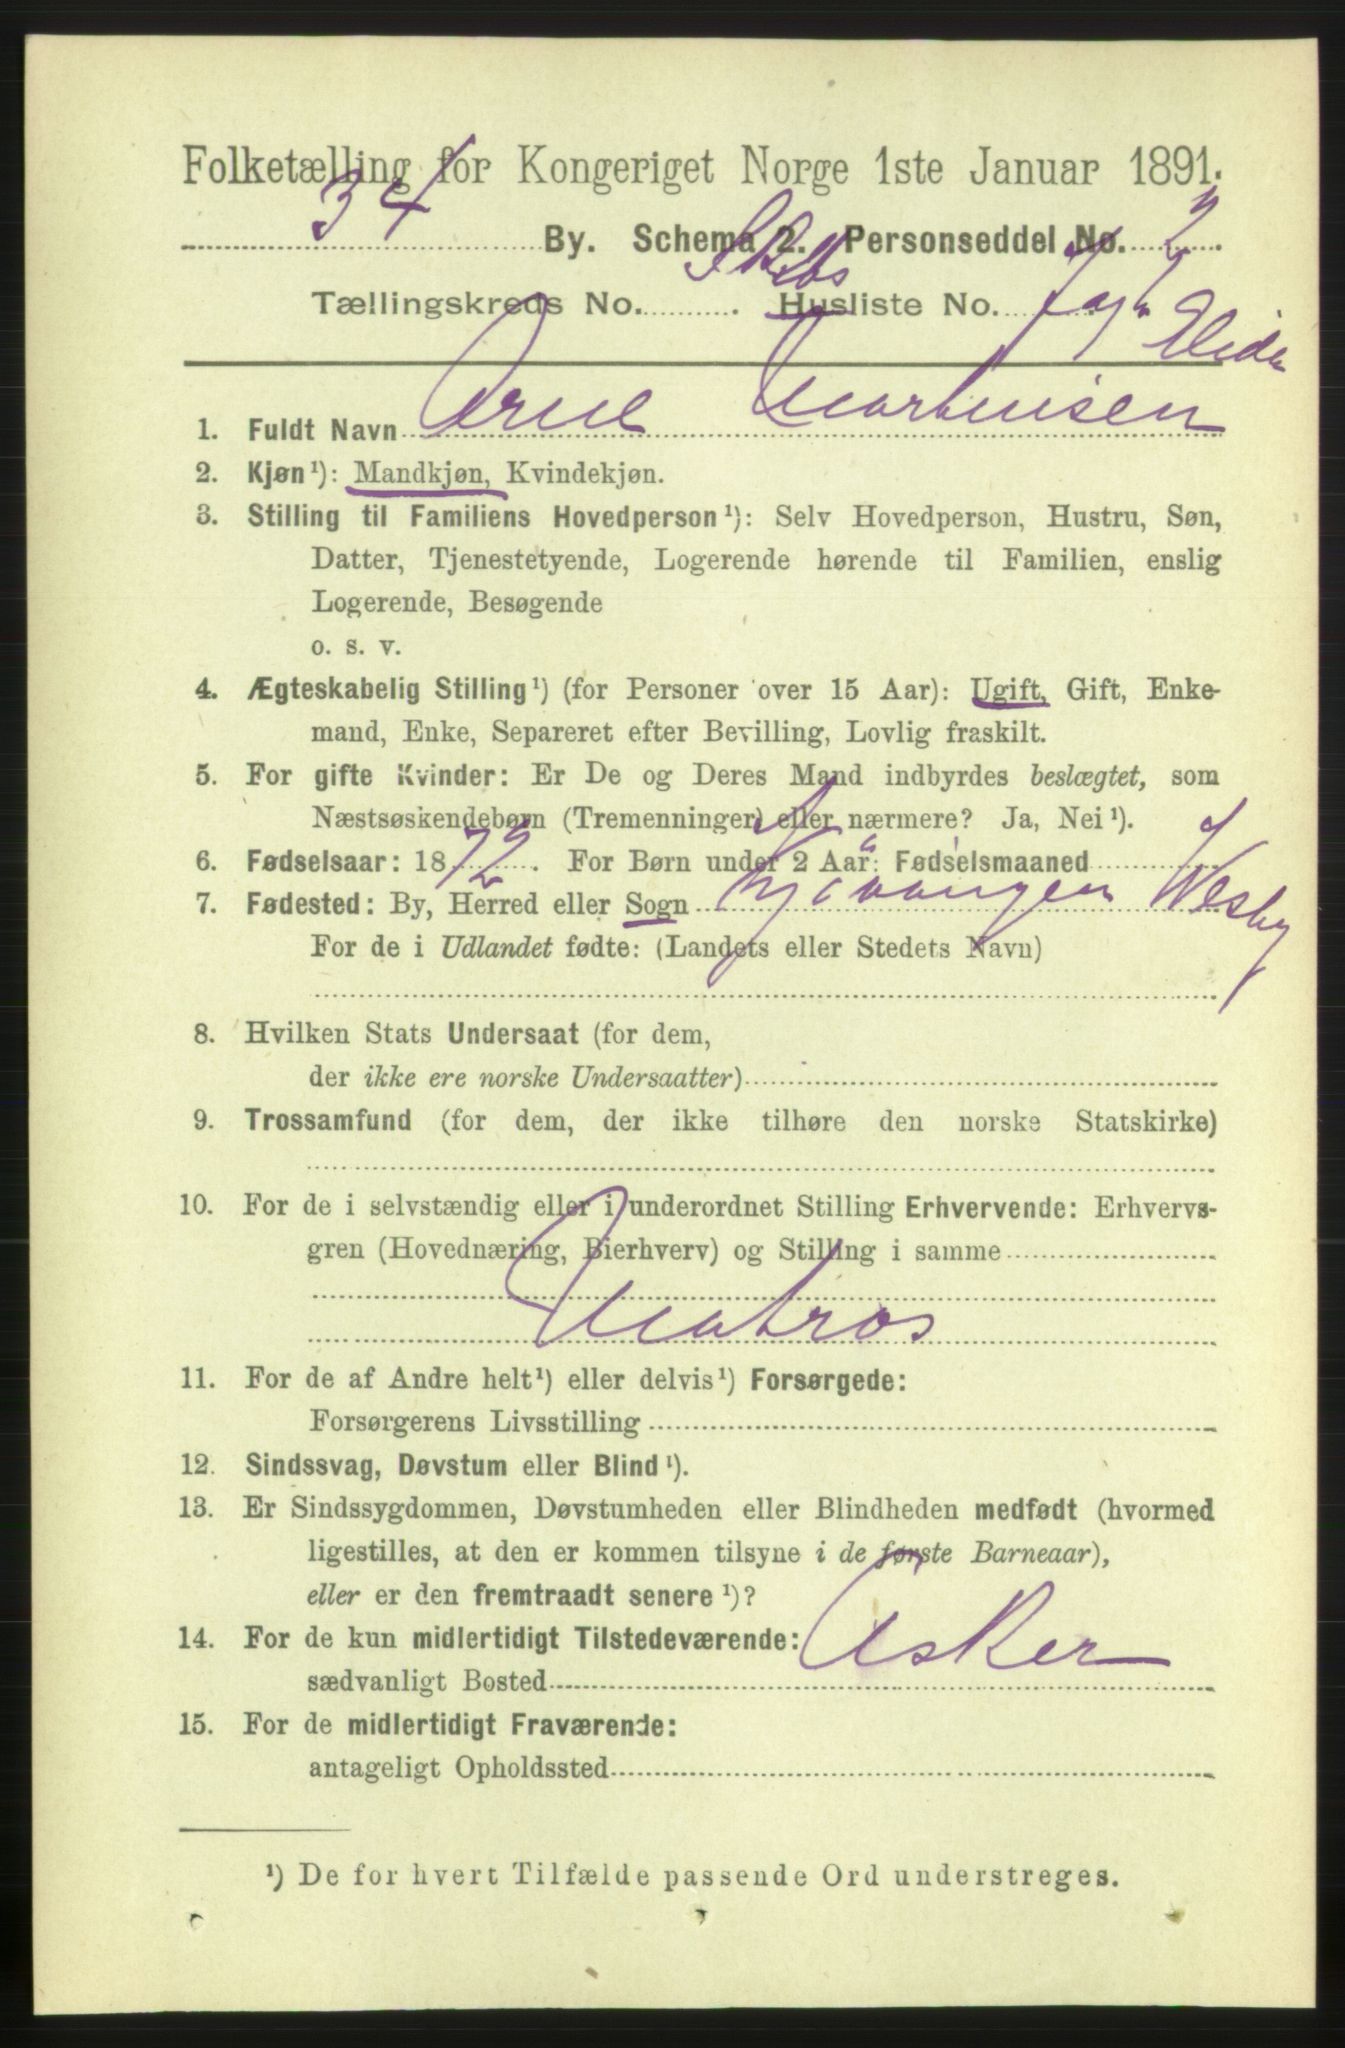 Folketælling for Kongeriget Norge 1ste Januar 1891.
34 By. Schema 2. Personseddel No. 2
Tællingskreds No. Skibs Husliste No.
1. Fuldt Navn Arne Martinisen
2. Kjøn¹): Mandkjøn, Kvindekjøn.
3. Stilling til Familiens Hovedperson¹): Selv Hovedperson, Hustru, Søn,
Datter, Tjenestetyende, Logerende hørende til Familien, enslig
Logerende, Besøgende
o. s. v.
4. Ægteskabelig Stilling¹) (for Personer over 15 Aar): Ugift, Gift, Enke-
mand, Enke, Separeret efter Bevilling, Lovlig fraskilt.
5. For gifte Kvinder: Er De og Deres Mand indbyrdes beslægtet, som
Næstsøskendebørn (Tremenninger) eller nærmere? Ja, Nei¹).
6. Fødselsaar: 1872. For Børn under 2 Aar: Fødselsmaaned
7. Fødested: By, Herred eller Sogn Wesby
For de i Udlandet fødte: (Landets eller Stedets Navn)
8. Hvilken Stats Undersaat (for dem,
der ikke ere norske Undersaatter)
9. Trossamfund (for dem, der ikke tilhøre den norske Statskirke)
10. For de i selvstændig eller i underordnet Stilling Erhvervende: Erhvervs-
gren (Hovednæring, Bierhverv) og Stilling i samme
Matros
11. For de af Andre helt¹) eller delvis¹) Forsørgede:
Forsørgerens Livsstilling
12. Sindssvag, Døvstum eller Blind¹).
13. Er Sindssygdommen, Døvstumheden eller Blindheden medfødt (hvormed
ligestilles, at den er kommen tilsyne i de første Barneaar),
eller er den fremtraadt senere¹)?
14. For de kun midlertidigt Tilstedeværende: Asker
sædvanligt Bosted
15. For de midlertidigt Fraværende:
antageligt Opholdssted
¹) De for hvert Tilfælde passende Ord understreges.